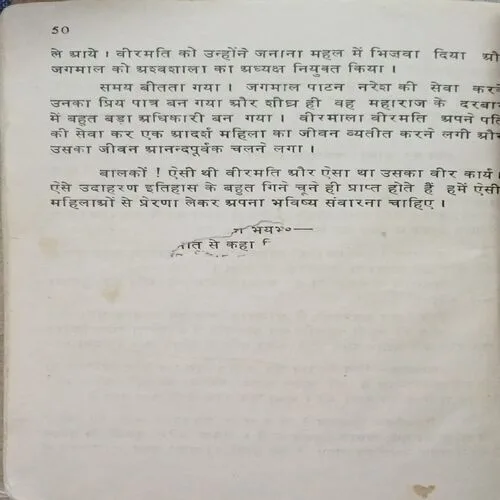 50
ले आये । वीरमति को उन्होंने जनाना महल में भिजवा दिया औ
जगमाल को अश्वशाला का अध्यक्ष नियुक्त किया ।
समय बीतता गया । जगमाल पाटन नरेश की सेवा कर
उनका प्रिय पात्र बन गया और शीघ्र ही वह महाराज के दरबा
में बहुत बड़ा अधिकारी बन गया । वीरमाला वीरमति अपने पति
की सेवा कर एक आदर्श महिला का जीवन व्यतीत करने लगी औ
उसका जीवन आनन्दपूर्वक चलने लगा ।
बालकों ! ऐसी थी वीरमति और ऐसा था उसका वीर कार्य ।
ऐसे उदाहरण इतिहास के बहुत गिने चूने ही प्राप्त होते हैं हमें ऐसी
महिलाओं से प्रेरणा लेकर अपना भविष्य संवारना चाहिए ।
से कहा